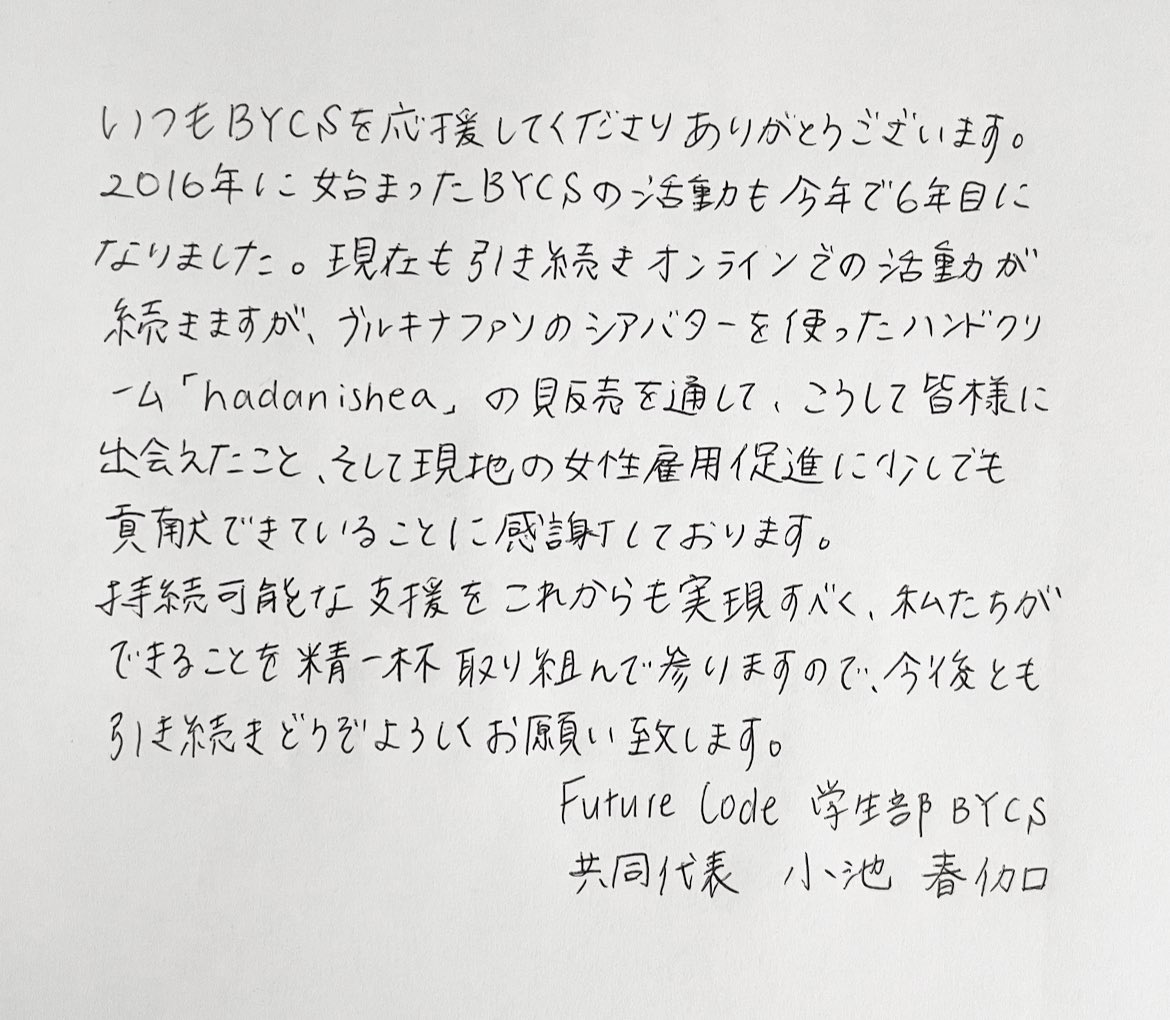 いつもBYCSを応援してくださりありがとうございます。
2016年に始まったBYCSの活動も今年で6年目に
なりました。現在も引き続きオンラインでの活動が
続きますが、ブルキナファソのシアバターを使ったハンドクリ
ーム「hadanishea」の販売を通して、こうして皆様に
出会えたこと、そして現地の女性雇用促進に少しでも
貢献できていることに感謝しております。
持続可能な支援をこれからも実現すべく、私たちが
できることを精一杯取り組んで参りますので、今後とも
引き続きどうぞよろしくお願い致します。
Future Code 学生部 BYCS
共同代表 小池 春伽